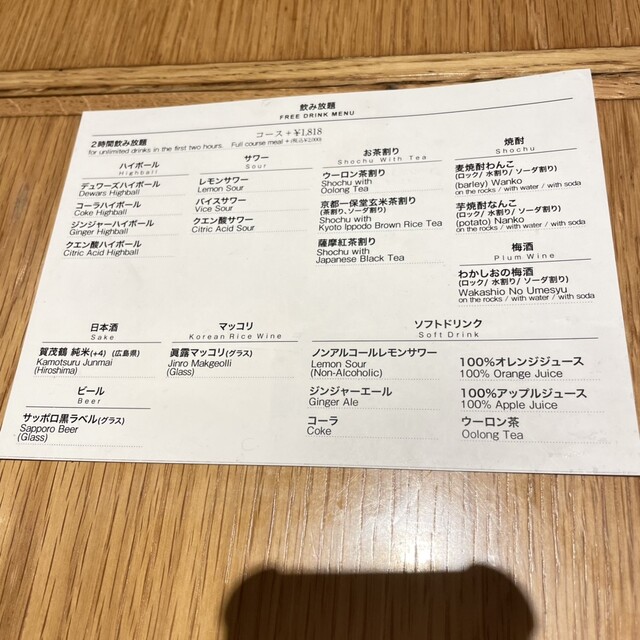 飲み放題
FREE DRINK MENU
コース+¥1,818
2時間飲み放題
for unlimited drinks in the first two hours. Full course meal +(税込¥2,000)
ハイボール
Highball
デュワーズハイボール
Dewars Highball
コーラハイボール
Coke Highball
ジンジャーハイボール
Ginger Highball
クエン酸ハイボール
Citric Acid Highball
サワー
Sour
レモンサワー
Lemon Sour
バイスサワー
Vice Sour
クエン酸サワー
Citric Acid Sour
お茶割り
Shochu With Tea
ウーロン茶割り
Shochu with
Oolong Tea
京都一保堂玄米茶割り
(茶割り、ソーダ割り)
Shochu with
Kyoto Ippodo Brown Rice Tea
薩摩紅茶割り
Shochu with
Japanese Black Tea
焼酎
Shochu
麦焼酎わんこ
(ロック/ 水割り/ ソーダ割り)
(barley) Wanko
on the rocks / with water / with soda
芋焼酎なんこ
(ロック/ 水割り/ ソーダ割り)
(potato) Nanko
on the rocks / with water / with soda
梅酒
Plum Wine
わかしおの梅酒
(ロック/ 水割り/ ソーダ割り)
Wakashio No Umesyu
on the rocks / with water / with soda
日本酒
Sake
賀茂鶴 純米(+4) (広島県)
Kamotsuru Junmai
(Hiroshima)
ビール
Beer
サッポロ黒ラベル(グラス)
Sapporo Beer
(Glass)
マッコリ
Korean Rice Wine
眞露マッコリ(グラス)
Jinro Makgeolli
(Glass)
ソフトドリンク
Soft Drink
ノンアルコールレモンサワー
Lemon Sour
(Non-Alcoholic)
ジンジャーエール
Ginger Ale
コーラ
Coke
100%オレンジジュース
100% Orange Juice
100%アップルジュース
100% Apple Juice
ウーロン茶
Oolong Tea